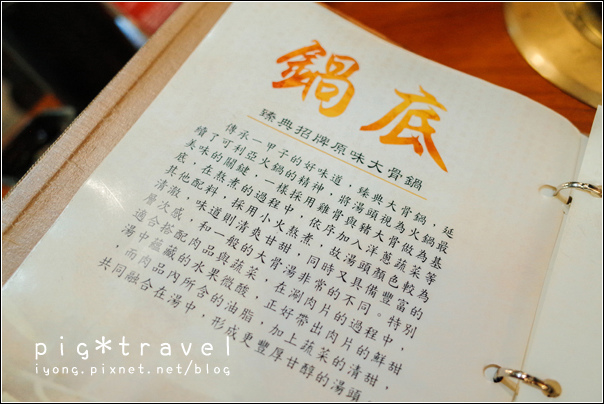 鍋底
臻典招牌原味大骨鍋
傳承一甲子的好味道，臻典大骨鍋，延
續了可利亞火鍋的精神，將湯頭視為火鍋最
美味的關鍵，一樣採用雞骨與豬大骨做為基
底，在熬煮的過程中，依序加入洋蔥蔬菜等
其他配料，採用小火熬煮，故湯頭顏色較為
清澈，味道則清爽甘甜，同時又具備豐富的
層次感，和一般的大骨湯非常的不同。特別
適合搭配肉品與蔬菜，在涮肉片的過程中，
湯中蘊藏的水果微酸，正好帶出肉片的鮮甜
，而肉品內所含的油脂，加上蔬菜的清甜，
共同融合在湯中，形成更豐厚甘醇的湯頭。
pig*travel
iyong.pixnet.net/blog